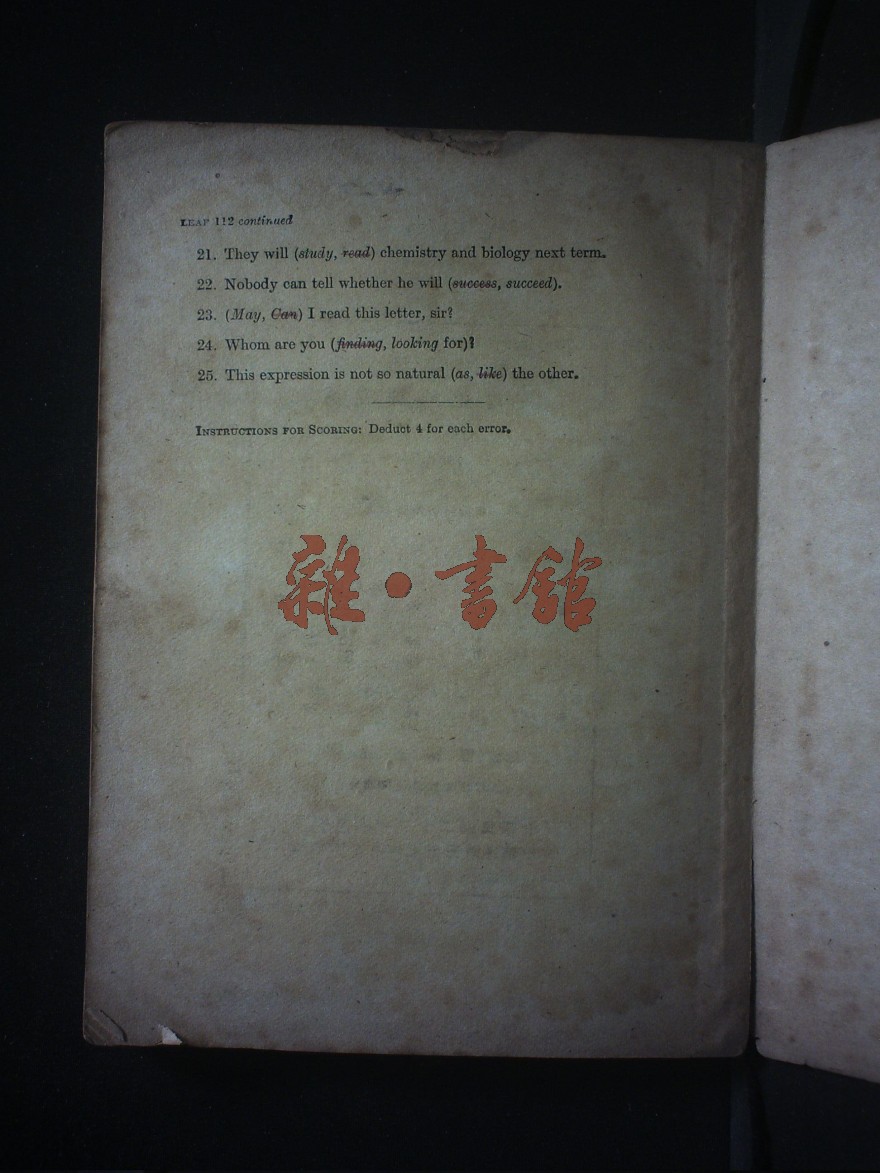 LEAF 112 continued
21. They will (study, read) chemistry and biology next term.
22. Nobody can tell whether he will (success, succeed).
23. (May, Can) I read this letter, sir?
24. Whom are you (finding, looking for)?
25. This expression is not so natural (as, like) the other.
INSTRUCTIONS FOR SCORING: Deduct 4 for each error.
雜·書館